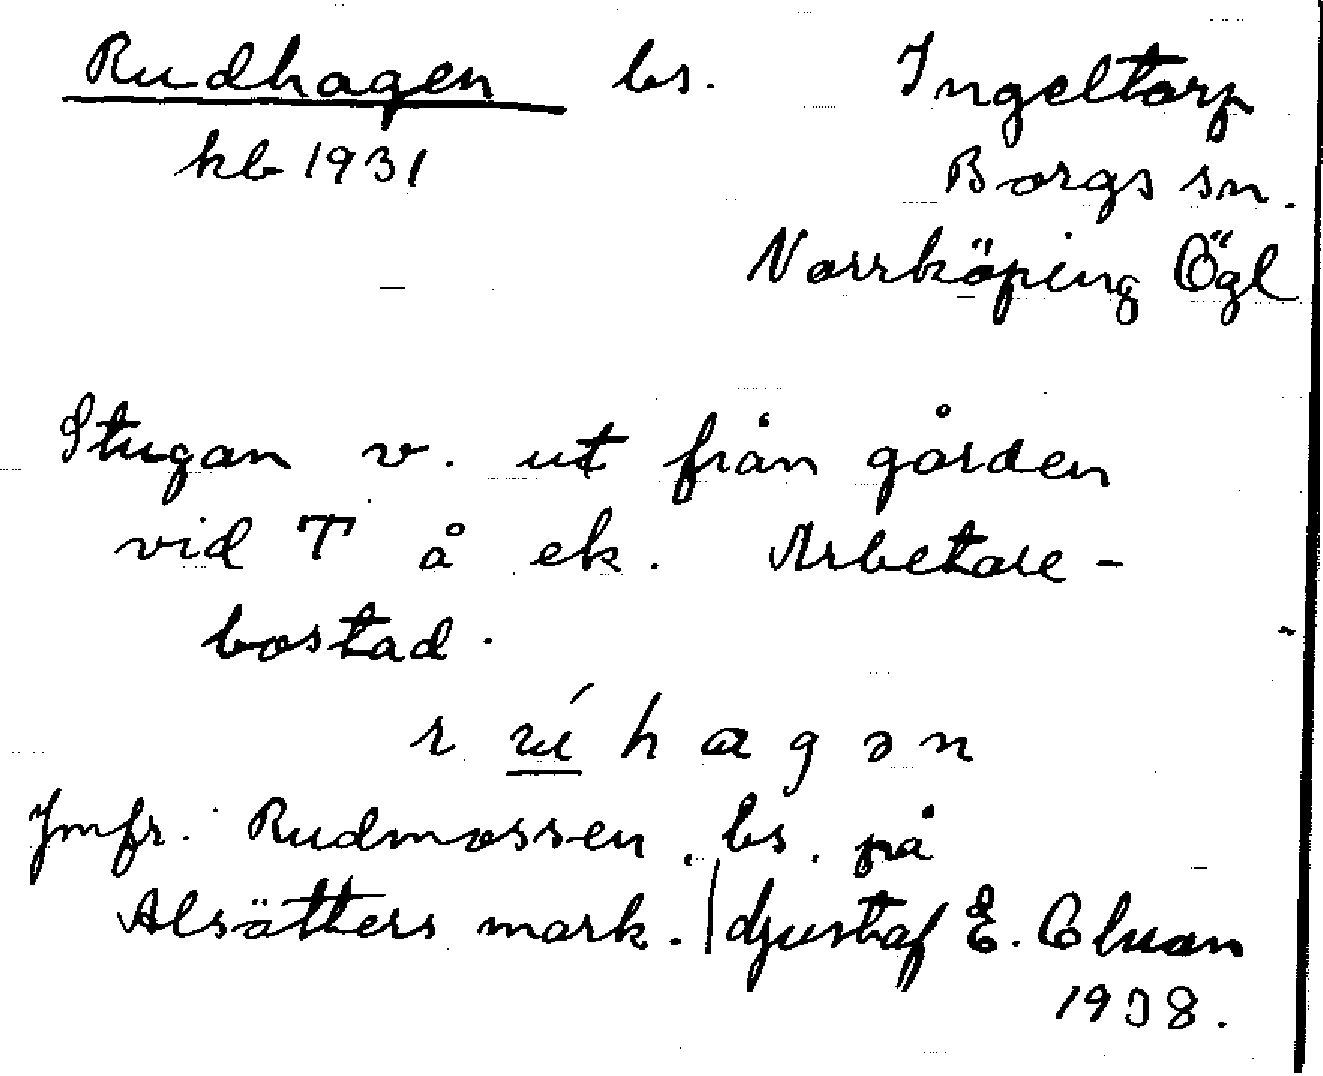 Rudhagen bs. Ingeltorp
kb 1931 Borgs sn.
Norrköping Ögl
Stugan v. ut från gården
vid T å ek. Arbetare-
bostad.
r ú h a g ə n
Jmfr. Rudmossen, bs. på
Alsätters mark. | Gustaf E.
1938.